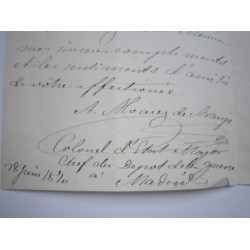 mes sincères compliments
et les sentiments d'amitié
de votre affectionné
A. Alvarez de Araujo
Colonel d'Etat Major
Chef du Depot de la guerre
à
Madrid
28 Juin 1870